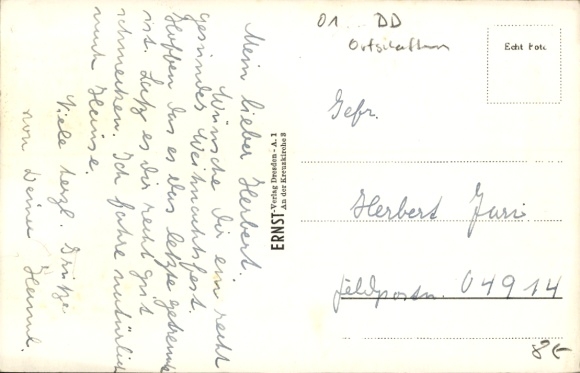 Mein lieber Herbert.
Wünsche dir ein recht
gesundes Weihnachtsfest.
Hoffen das es das letzte getrennte
ist. Laß es dir recht gut
schmecken. Ich fahre natürlich
nach Hause.
Viele herzl. Grüße
von Deiner Hanni.
ERNST-Verlag Dresden-A. 1
An der Kreuzkirche 3
01 DD
Echt Foto
Gefr.
Herbert
Feldpostn. 04914
8€